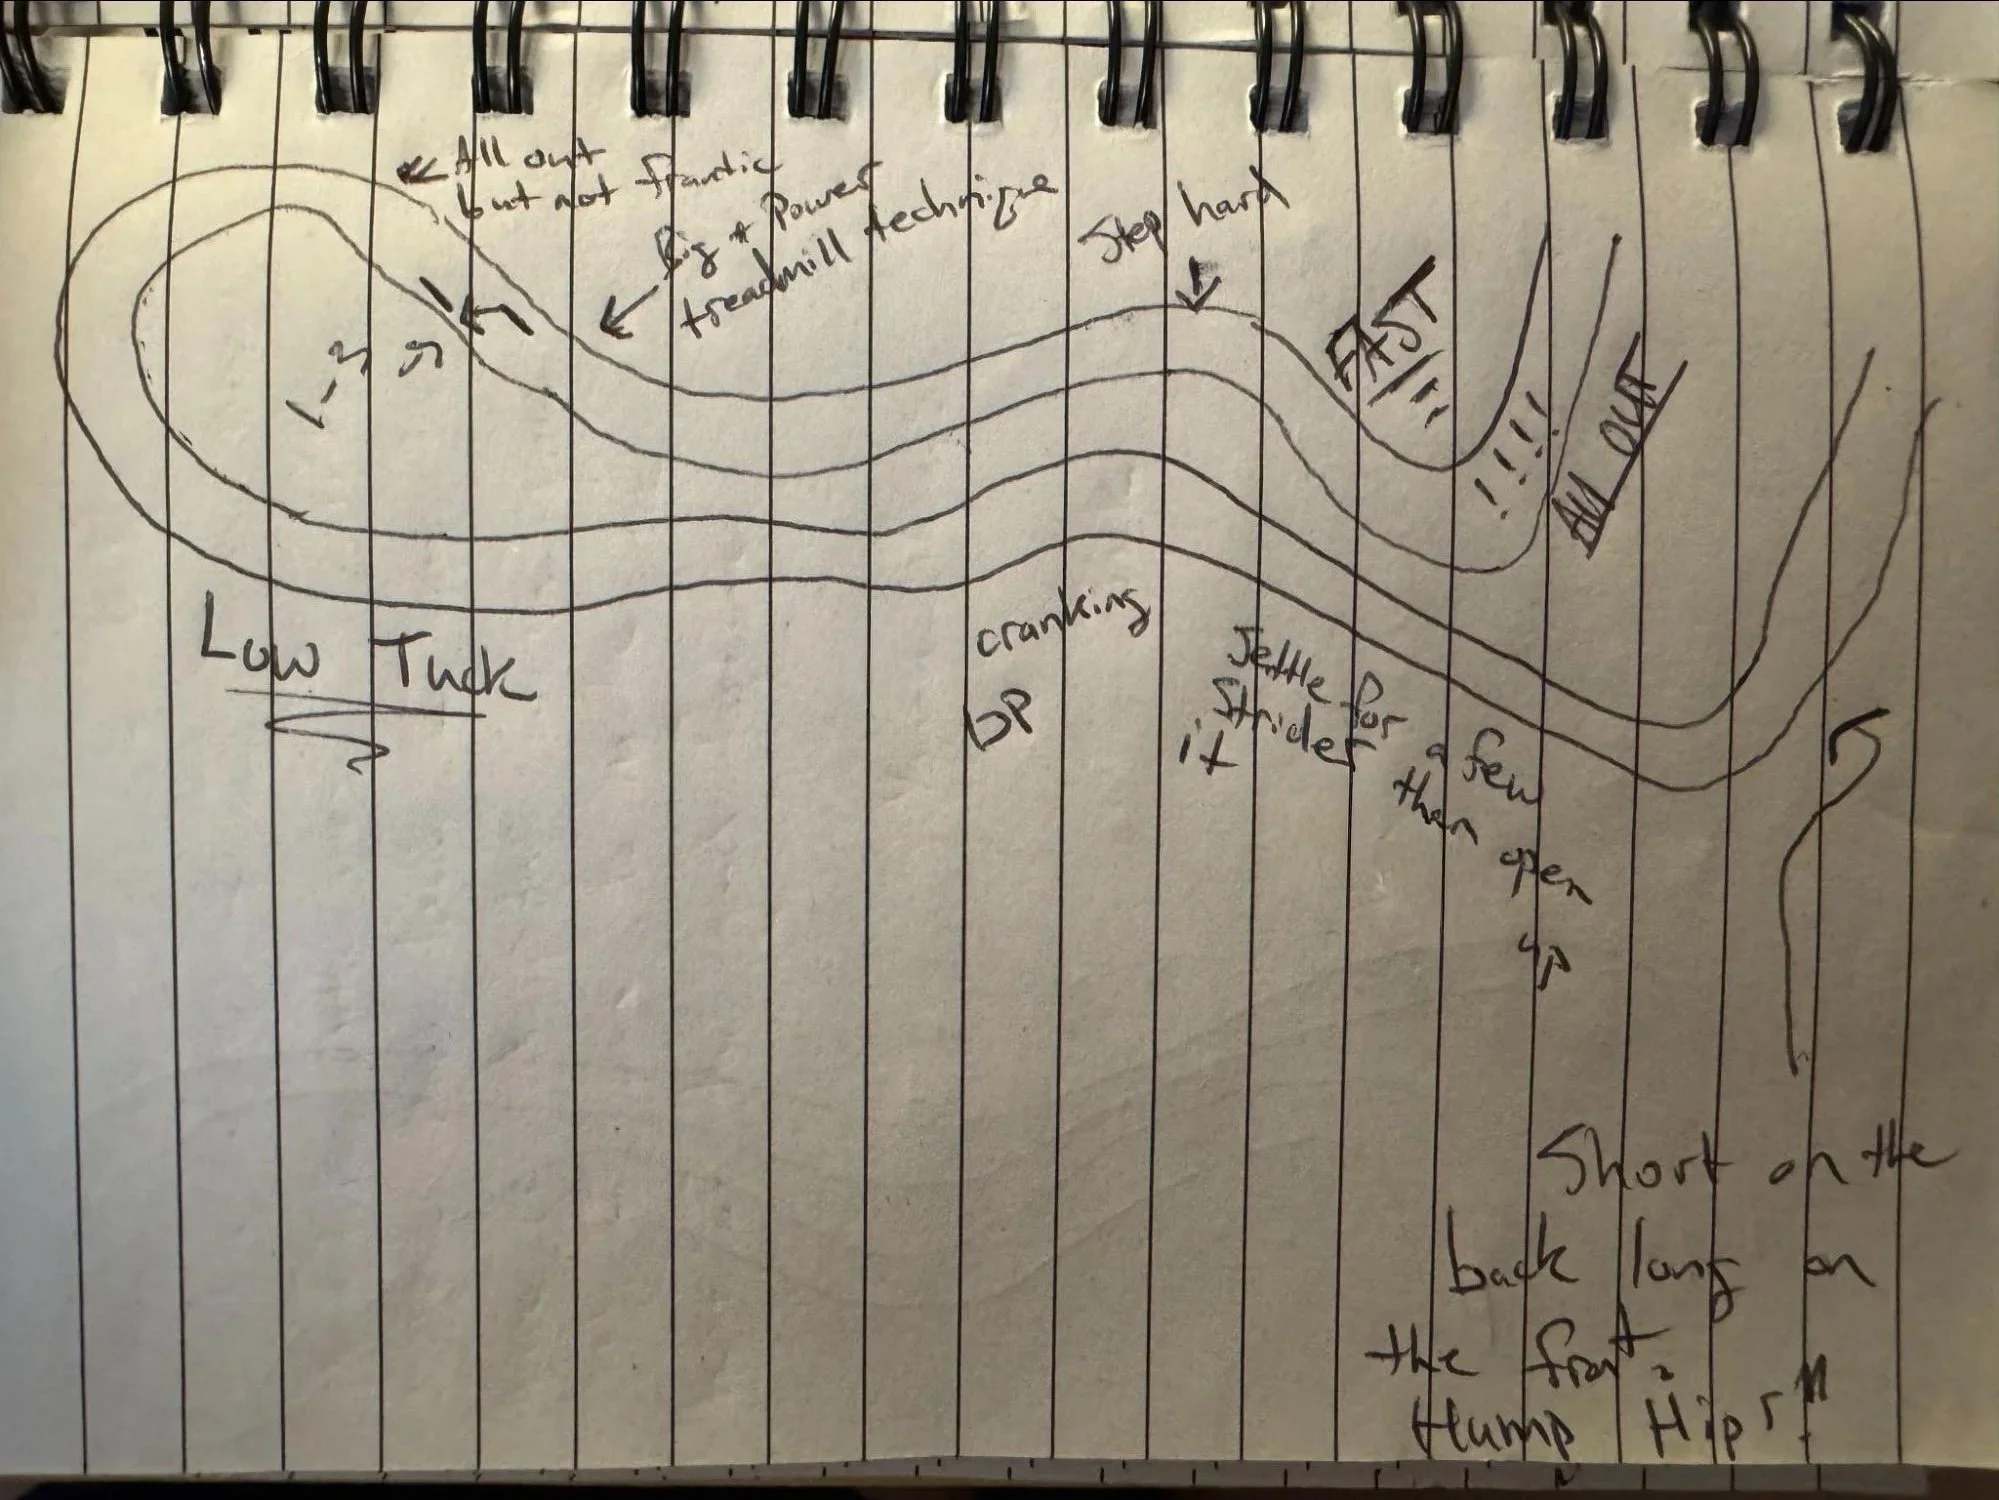 All out
but not frantic
Big + Power
treadmill technique
Step hard
FAST
!!!!
ALL OUT
1-3
Low Tuck
cranking
DP
Settle for a few then open up
Strider
it
Short on the
back long on
the front
Hump Hips"